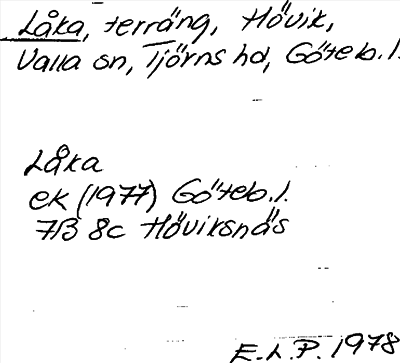 Låka, terräng, Hövik,
Valla sn, Tjörns hd, Göteb. l.
Låka
ek (1977) Göteb. l.
7B 8c Höviksnäs
E.L.P. 1978